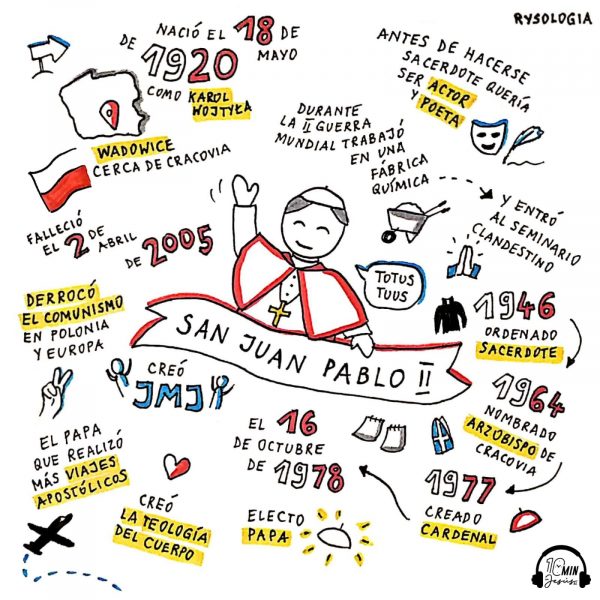 RYSOLOGIA
NACIÓ EL 18 DE
MAYO
DE 1920
COMO KAROL
WOJTYŁA
WADOWICE
CERCA DE CRACOVIA
ANTES DE HACERSE
SACERDOTE QUERÍA
SER ACTOR
Y POETA
DURANTE
LA II GUERRA
MUNDIAL TRABAJÓ
EN UNA
FÁBRICA
QUÍMICA
Y ENTRÓ
AL SEMINARIO
CLANDESTINO
1946
ORDENADO
SACERDOTE
1964
NOMBRADO
ARZOBISPO DE
CRACOVIA
1977
CREADO
CARDENAL
EL 16
DE OCTUBRE
DE 1978
ELECTO
PAPA
TOTUS
TUUS
SAN JUAN PABLO II
CREÓ
JMJ
CREÓ
LA TEOLOGÍA
DEL CUERPO
EL PAPA
QUE REALIZÓ
MÁS VIAJES
APOSTÓLICOS
DERROCÓ
EL COMUNISMO
EN POLONIA
Y EUROPA
FALLECIÓ
EL 2 DE
ABRIL
DE 2005
10MIN
Jesús